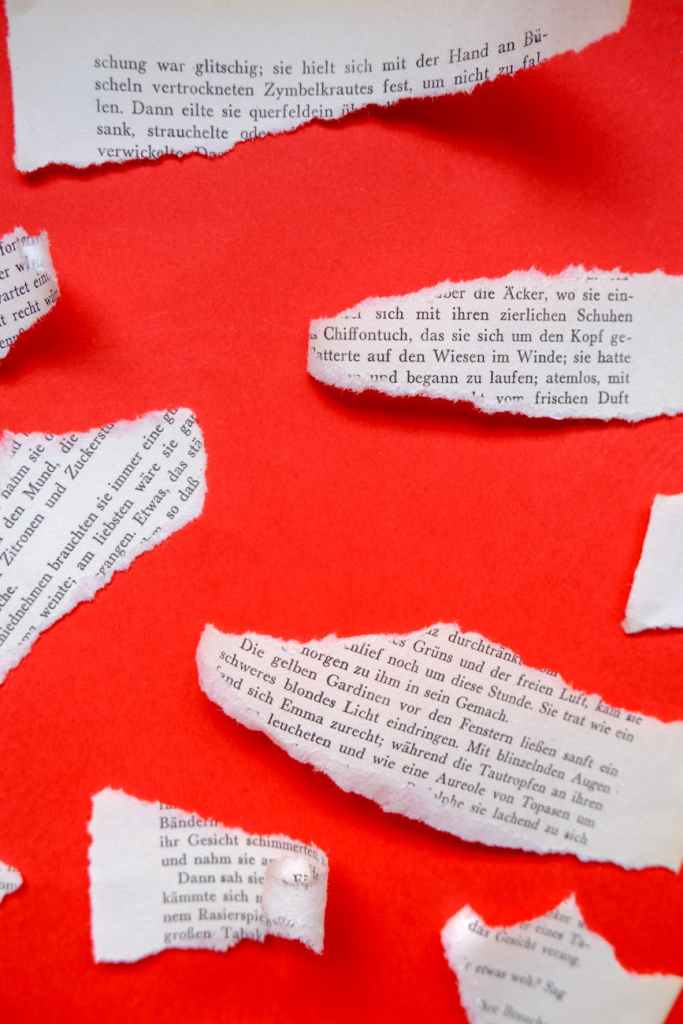 schung war glitschig; sie hielt sich mit der Hand an Bü-
scheln vertrockneten Zymbelkrautes fest, um nicht zu fal-
len. Dann eilte sie querfeldein
sank, strauchelte
verwickelte
recht
über die Äcker, wo sie ein-
sich mit ihren zierlichen Schuhen
Chiffontuch, das sie sich um den Kopf ge-
atterte auf den Wiesen im Winde; sie hatte
und begann zu laufen; atemlos, mit
vom frischen Duft
nahm sie
den Mund, die
Zitronen und
hiednehmen brauchten sie immer eine
weinte; am liebsten wäre sie
gangen. Etwas, das
so daß
durchtränkt
Grüns und der freien Luft, kam sie
norgen zu ihm in sein Gemach.
nlief noch um diese Stunde. Sie trat wie ein
Die gelben Gardinen vor den Fenstern ließen sanft ein
schweres blondes Licht eindringen. Mit blinzelnden Augen
and sich Emma zurecht; während die Tautropfen an ihren
leuchteten und wie eine Aureole von Topasen um
sie lachend zu sich
Bändern
ihr Gesicht schimmerten
und nahm sie
Dann sah sie
kämmte sich
nem Rasierspieg
großen Tabak
eines Ta-
das Gesicht verzog.
etwas weh? Sag